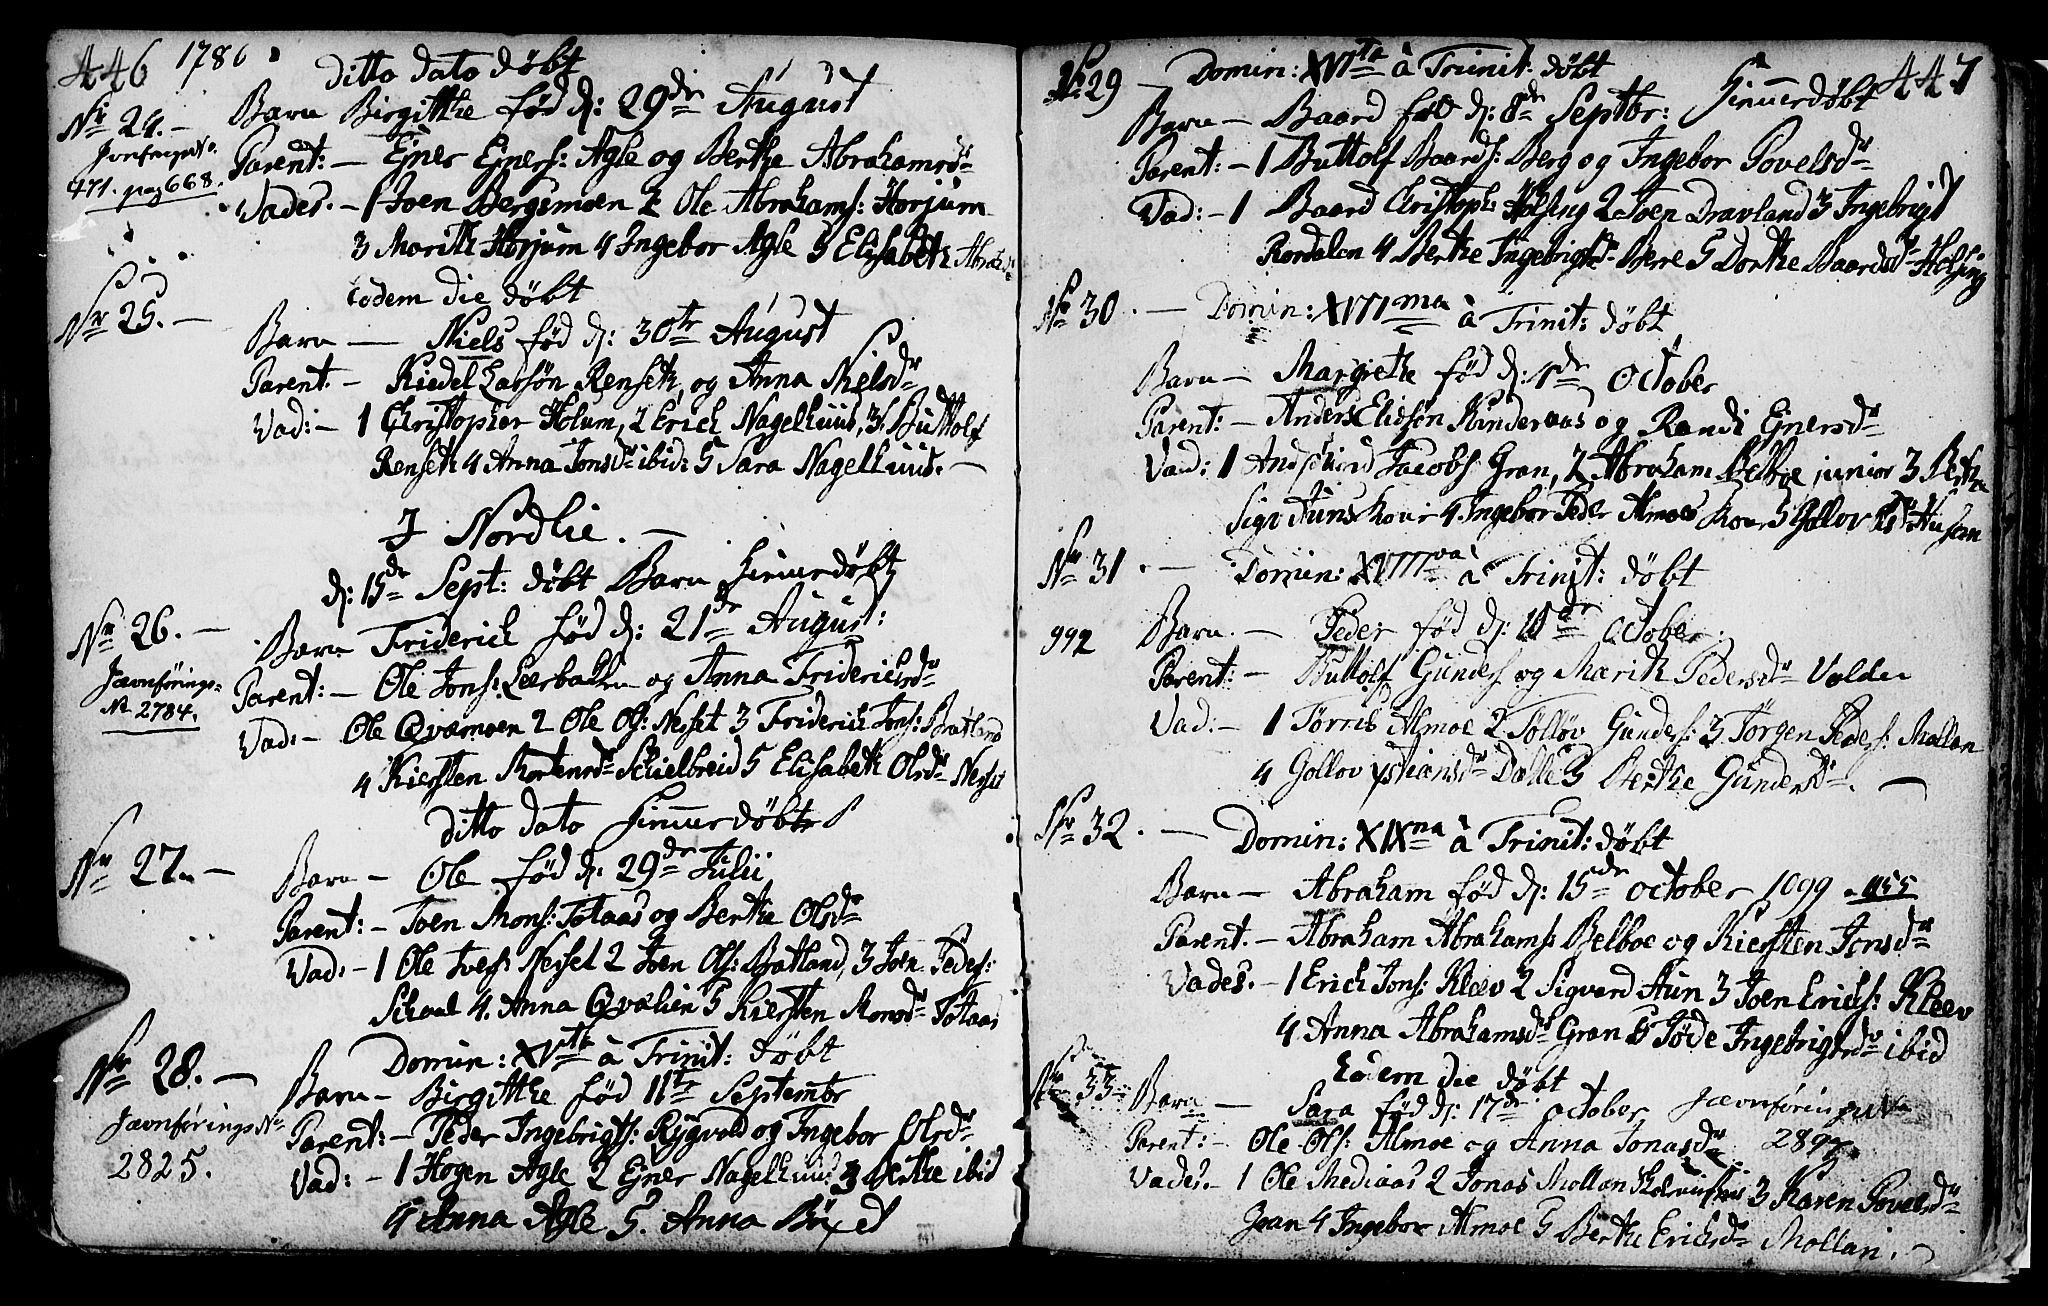 446 1786
Ditto dato döbt
Nr 24. — Barn Birgitthe föd d: 29de August
Parent: — Ejner Ejners: Agle og Berthe Abrahamsdr
471. pag 668.
Vades. — 1 Joen Bergsmoen 2 Ole Abrahams: Horjum
3 Marith Horjum 4 Ingebor Agle 5 Elisabeth
Eodem die döbt
Nr 25. —
Barn — Niels föd d: 30te August
Parent. — Larsön Renseth og Anna Nielsdr
Vad: — 1 Christopher Holum, 2 Erich Nagelhuus, 3 Buttolf
Renseth 4 Anna Jonsdr ibid: 5 Sara Nagelhuus. —
I Nordlie. —
d: 15de Sept: döbt Barn hiemmedöbt
Nr 26. — Barn Friderich föd d: 21de August:
Jævnförings-
No 2784.
Parent: — Ole Jons: Leerbakken og Anna Friderichsdr
Vad: — Ole Qvæmoen 2 Ole Ols: Nesset 3 Friderich Jons: Bratland
4 Kiersten Mortensdr Skielbreid 5 Elisabeth Olsdr Nesset
Ditto dato hiemmedöbt
Nr 27. —
Barn — Ole föd d: 29de Julii
Parent: — Joen Mons: Totaas og Berthe Olsdr
Vad. — 1 Ole Ives: Nesset 2 Joen Ols: Bratland, 3 Joen Peders:
4. Anna Qvælien 5 Kiersten Monsdr Totaas
Domin: XVte à Trinit: döbt
Nr 28. — Barn — Birgitthe föd 11te Septembr
Jævnförings No
2825.
Parent: — Peder Ingebrigts: Rygvold og Ingebor Olsdr
Vad: — 1 Hogen Agle 2 Ejner Nagelhuus 3 Berthe ibid
4 Anna Agle 5. Anna
447
Nr 29 — Domin: XVIte à Trinit: döbt
Barn — Baard föd d: 8de Septbr: hiemmedöbt
Parent: — 1 Buttolf Baards: Berg og Ingebor Povelsdr
Vad: — 1 Baard Christoph: Holsing 2 Joen Dravland 3 Ingebrigt
Rördalen 4 Berthe Ingebrigtsdr Berre 5 Dorthe Baardsdr Holsing
Nr 30. — Domin: XVIIma à Trinit: döbt
Barn — Margrethe föd d: 1de October
Parent: — Anders Eliasön Kinderaas og Randi Ejnersdr
Vad: 1 Jacobs: Gran, 2 Abraham Belboe junior 3 Berthe
Sigv Auns Kone 4 Ingebor Peder Almoes Kone 5 Gollov
Nr 31. — Domin: XVIIIva à Trinit: döbt
992 Barn. — Peder föd d: October.
Parent: — Buttolf Gunders og Marith Pedersdr Volden
Vad: — 1 Törris Almoe 2 Gunders: 3 Jörgen Peders: Mollan
4 Gollov xstiansdr Dalle 5 Berthe Gundersdr. —
Nr 32. — Domin: XIXna à Trinit: döbt
Barn — Abraham föd d: 15de October 1099 - 1155
Parent. — Abraham Abrahams: Belboe og Kiersten Jonsdr
Vades. — 1 Erich Jons: Kleev 2 Sigvard Aun 3 Joen Erichs: Kleev
4 Anna Abrahamsdr Gran 5 Ingebrigtsdr ibid
Eodem die döbt
Nr 33. Barn — Sara föd d: 17de October
Parent: — Ole Ols: Almoe og Anna Jonasdr
Vades. — 1 Ole Mediaas 2 Jonas Mollan 3 Karen Povelsdr
Joan 4 Ingebor Almoe 5 Berthe Erichsdr Mollan. —